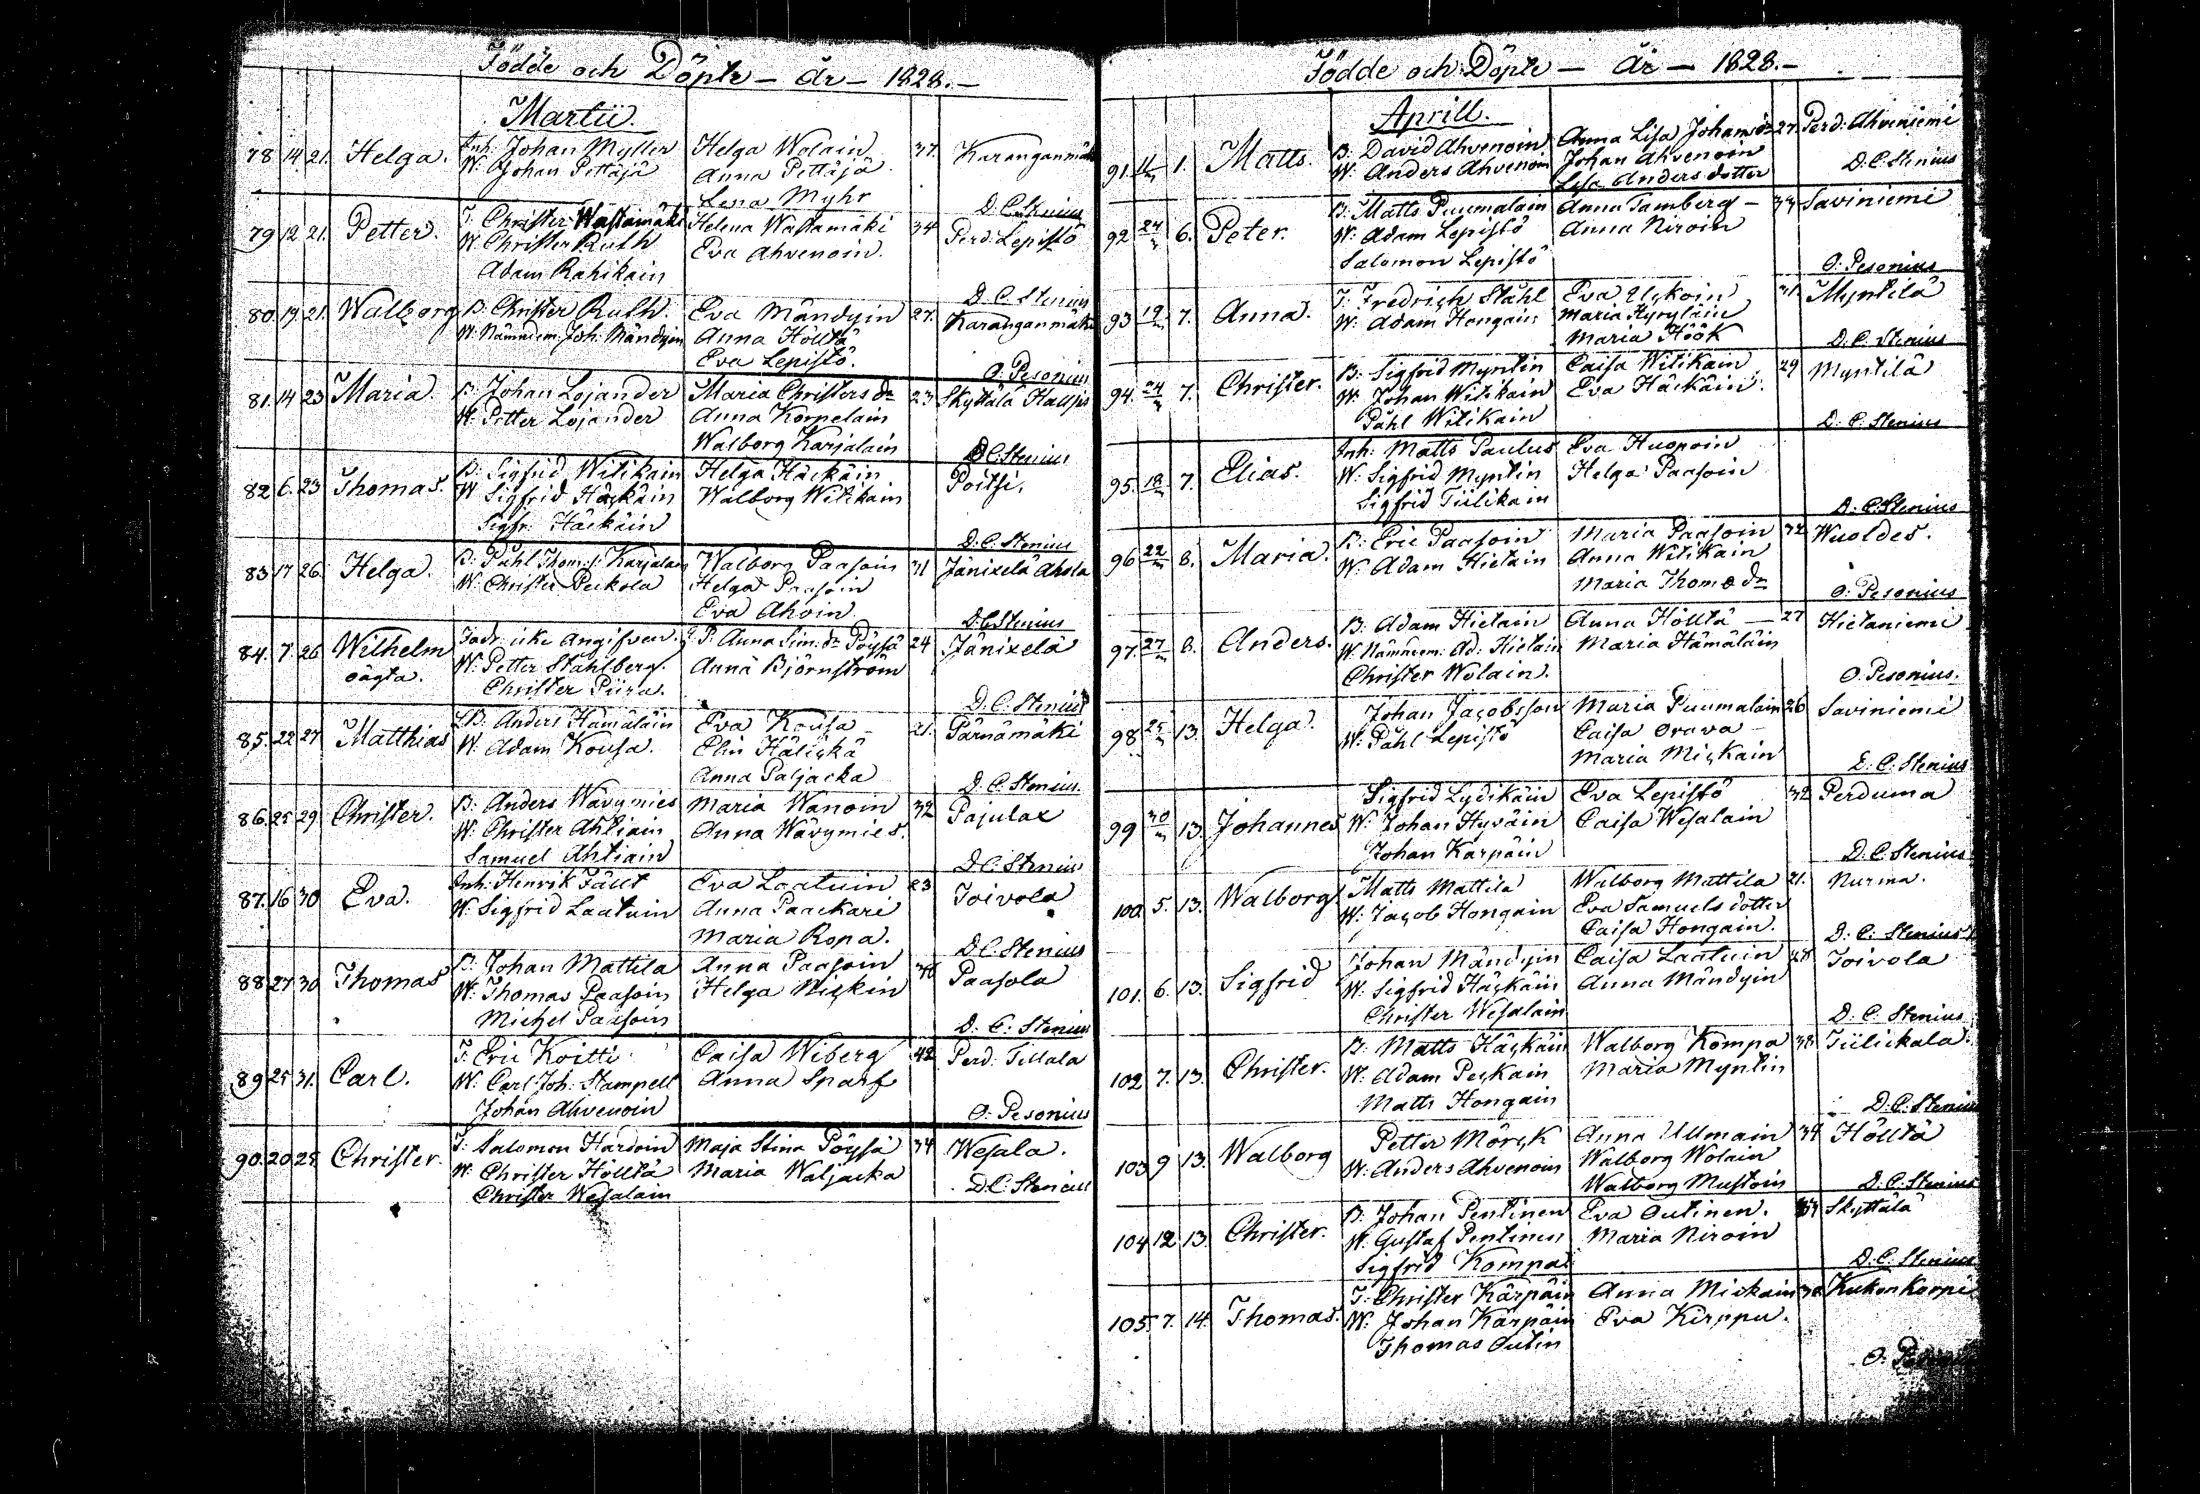 Födde och Döpte – år – 1828. –
Martii.
78. 14. 21. Helga. Inh: Johan Myller Helga Wolain 37. Karanganmäki
W: Johan Pettäjä Anna Pettäjä
Lena Myhr D. C. Stenius
79 12 21. Petter. T. Christer Wastamäki Helena Wastamäki 34 Perd: Lepistö
W. Christer Ruth Eva Ahvenoin.
Adam Rahikain D. C. Stenius
80. 19. 21. Walborg B. Christer Ruth. Eva Mändyin 27. Karanganmäki
W. Nämndem. Joh: Mändyin Anna Hölltä
Eva Lepistö. O. Pesonius
81. 14 23 Maria. B. Johan Lojander Maria Christers dr 23 Skyttälä
W. Petter Lojander Anna Korpelain
Walborg Karjalain D C Stenius
82 6. 23 Thomas. B: Sigfrid Witikain Helga Häckäin Poitsi.
W Sigfrid Häckäin Walborg Witikain
Sigfr: Häckäin D. C. Stenius
83 17 26. Helga. B: Påhl Thom: s. Karjalain Walborg Paasoin 31 Jänixelä Ahola
W. Christer Peckola Helga Paasoin
Eva Ahoin D. C Stenius
84. 7. 26 Wilhelm Fadr: icke angifven. Anna Sim: dr Pöysä 24 Jänixelä
oägta. W. Petter Ståhlberg. Anna Björnström
Christer Piira. D. C. Stenius
85. 22 27 Matthias Anders Hämäläin Eva Kousa – 21. Pärnämäki
W. Adam Kousa. Elin Hälickä
Anna Paljacka D. C. Stenius.
86. 25 29 Christer. B: Anders Wävymies Maria Wänoin 32 Pajulax
W: Christer Ahtiain Anna Wävymies.
Samuel Ahtiain D. C. Stenius
87. 16 30 Eva. Inh: Henrik Fällt Eva Laatuin 23 Toivola
W. Sigfrid Laatuin Anna Paackari
Maria Ropa. D C. Stenius
88 27 30 Thomas B: Johan Mattila Anna Paasoin Paasola
W: Thomas Paasoin Helga Nickin
Michel Paasoin D. C. Stenius
89 25 31. Carl. T. Eric Koitti Caisa Wiberg 42 Perd: Tillala
W. Carl Joh: Stampell Anna Sparf
Johan Ahvenoin O. Pesonius
90. 20 25 Christer. T: Salomon Haroin Maja Stina Pöysä 34 Wesala.
W: Christer Hölltä Maria Waljacka
Christer Wesalain D. C. Stenius
Födde och Döpte – År – 1828. –
Aprill.
91. 1. Matts. B. David Ahvenoin Anna Lisa Johans dr 27. Perd: Ahveniemi
W. Anders Ahvenoin Johan Ahvenoin D. C. Stenius
Lisa Anders dotter
92 24 6. Peter. B: Matts Puumalain Anna Tamberg – 33 Saviniemi
W: Adam Lepistö Anna Niroin
Salomon Lepistö O. Pesonius
93 19 7. Anna. T: Fredrich Ståhl Eva Uckoin 31 Myntilä
W: Adam Hongain Maria Hyryläin
Maria Höök D. C. Stenius
94. 24 7. Christer. B: Sigfrid Myntin Caisa Witikain 29 Myntilä
W. Johan Witikain Eva Häckäin.
Påhl Witikain D. C. Stenius
95. 18 7. Elias. Inh: Matts Paulus Eva Huopoin
W. Sigfrid Myntin Helga Paasoin
Sigfrid Tiilikain D. C. Stenius
96 22 8. Maria. B: Eric Paasoin Maria Paasoin 32 Wuoldes.
W. Adam Hietain Anna Witikain
Maria Thomas dr O. Pesonius
97. 27 8. Anders. B. Adam Hietain Anna Hölltä — 27 Hietaniemi
W. Nämndem: Ad: Hietain Maria Hämäläin
Christer Wolain. O. Pesonius.
98 25 13. Helga. Johan Jacobsson Maria Puumalain 26 Saviniemi
W: Påhl Lepistö Caisa Orava
Maria Mickain D. C. Stenius
99 30 13. Johannes Sigfrid Lydikäin Eva Lepistö 32 Perduma
W: Johan Hyväin Caisa Wesalain
Johan Karpäin D. C. Stenius
100. 5. 13. Walborg Matts Mattila Walborg Mattila 21. Nurma.
W. Jacob Hongain Eva Samuels dotter
Caisa Hongain. D: C: Stenius
101. 6. 13. Sigfrid Johan Mändyin Caisa Laatuin 28 Toivola
W. Sigfrid Häckäin Anna Mändyin
Christer Wesalain D. C. Stenius
102. 7. 13. Christer. B: Matts Häckäin Walborg Kompa 38 Tiilickala.
W. Adam Peckain Maria Myntin
Matts Hongain D: C: Stenius
103 9 13. Walborg Petter Mörck Anna Ullmain 34 Hölltä
W. Anders Ahvenoin Walborg Wolain
Walborg Mustoin D. C. Stenius
104 12 13. Christer. B. Johan Pentinen Eva Outinen. Skyttälä
W. Gustaf Pentinen Maria Niroin
Sigfrid Kompai D. C. Stenius
105. 7. 14. Thomas. T: Christer Kärpäin Anna Mickain 30 Kukonkorpi
W. Johan Kärpäin Eva Kirppu.
Thomas Outin O. Pesonius